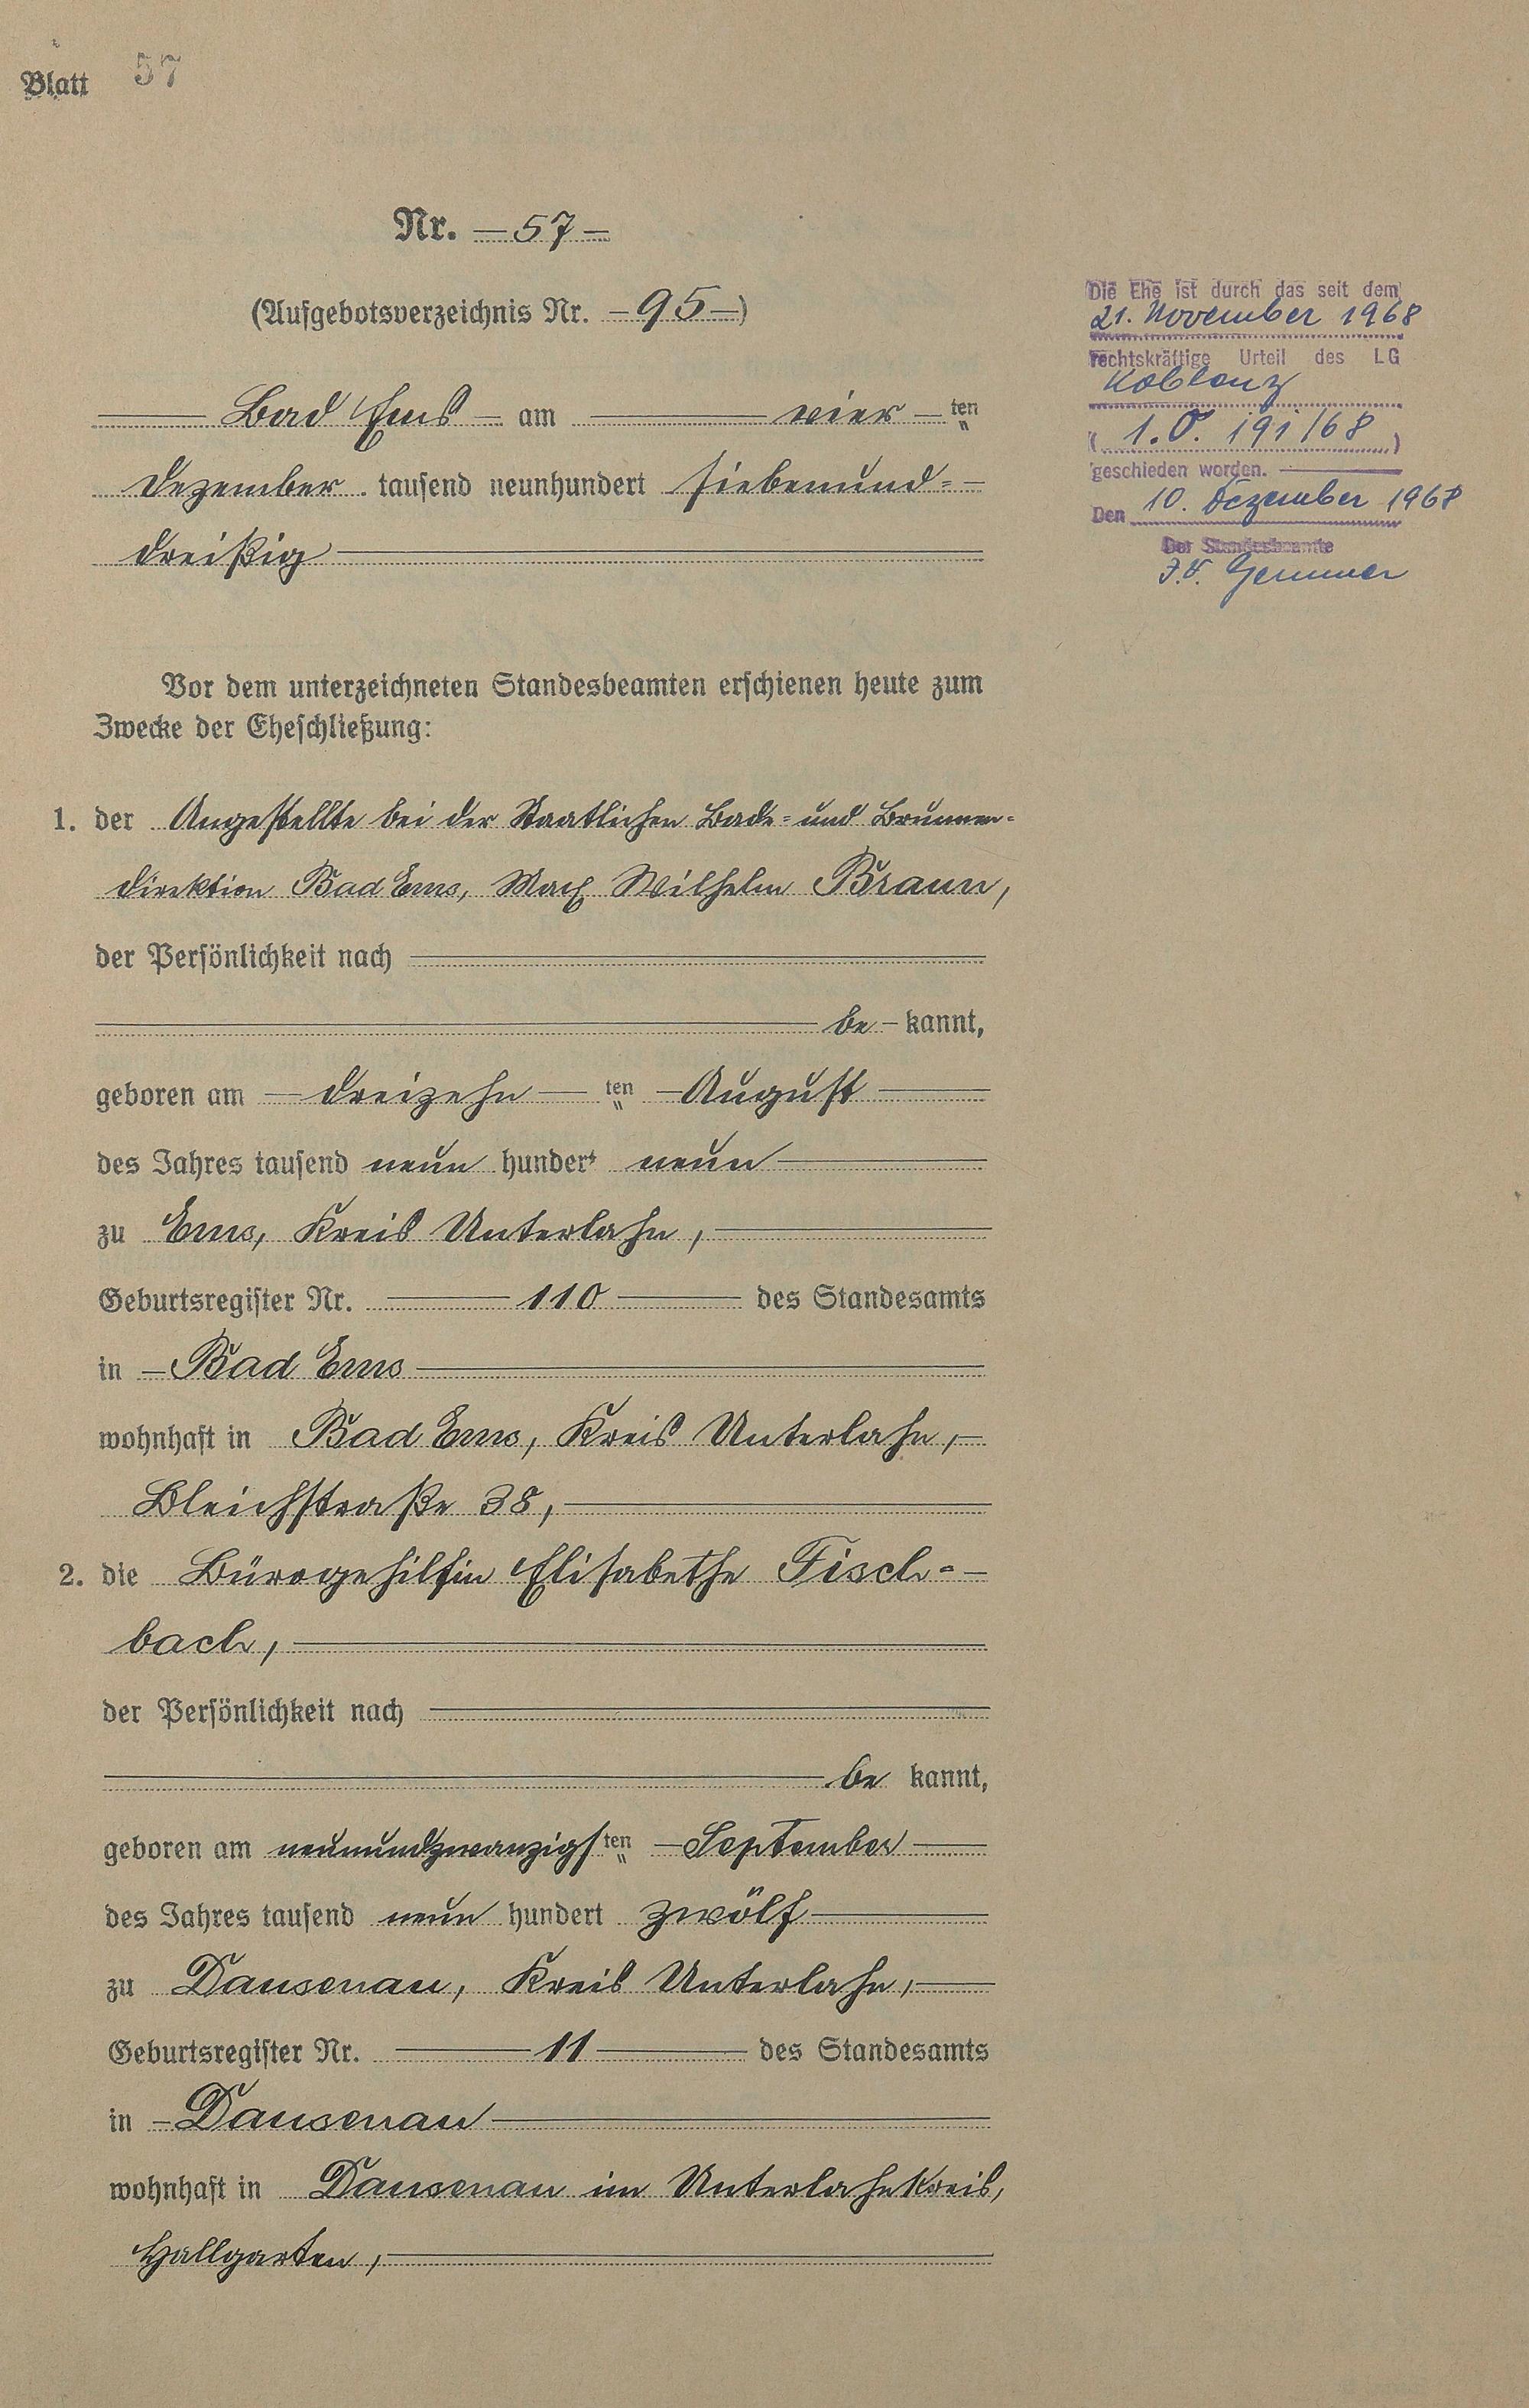 Blatt 57
Nr. — 57 —
(Aufgebotsverzeichnis Nr. — 95 —)
Bad Ems — am — vier — ten
Dezember tausend neunhundert siebenund=
dreißig
Vor dem unterzeichneten Standesbeamten erschienen heute zum
Zwecke der Eheschließung:
1. der Angestellte bei der Staatlichen Bade= und Brunnen=
direktion Bad Ems, Max Wilhelm Braun,
der Persönlichkeit nach
be — kannt,
geboren am — dreizehn — ten — August
des Jahres tausend neun hundert neun
zu Ems, Kreis Unterlahn,
Geburtsregister Nr. 110 des Standesamts
in — Bad Ems
wohnhaft in Bad Ems, Kreis Unterlahn,
Bleichstraße 38,
2. die Bürogehilfin Elisabethe Fisch=
bach,
der Persönlichkeit nach
be kannt,
geboren am neunundzwanzigsten — September
des Jahres tausend neun hundert zwölf
zu Dausenau, Kreis Unterlahn,
Geburtsregister Nr. 11 des Standesamts
in — Dausenau
wohnhaft in Dausenau im Unterlahnkreis,
Hallgarten,
Die Ehe ist durch das seit dem
21. November 1968
rechtskräftige Urteil des LG
Koblenz
( 1. O. 191/68 )
geschieden worden.
Den 10. Dezember 1968
Der Standesbeamte
J.V. Gemmer